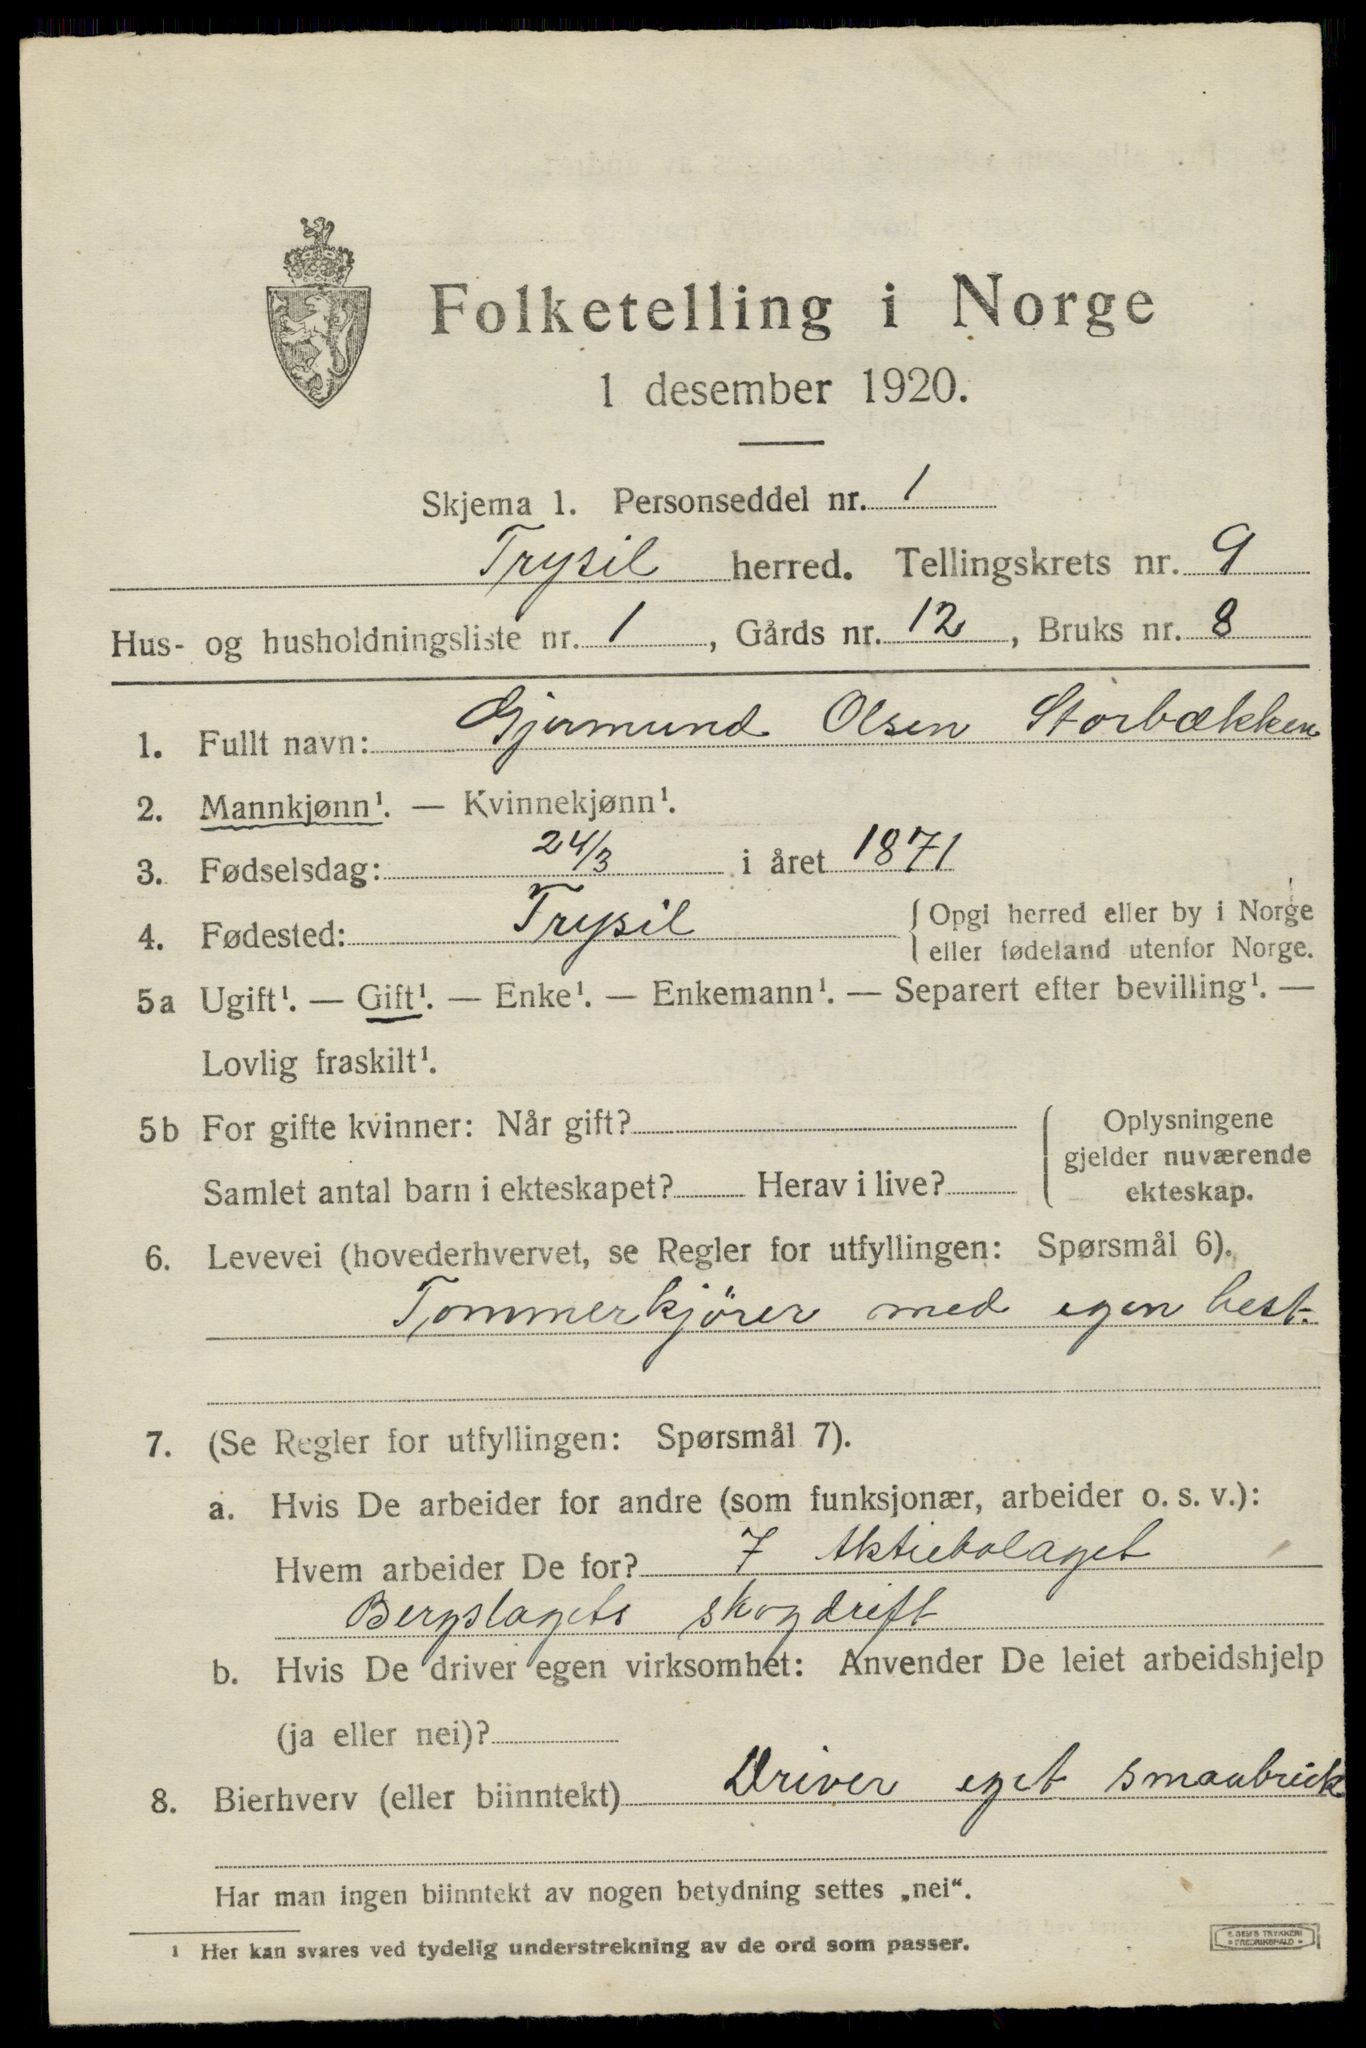 Folketelling i Norge
1 desember 1920.
Skjema 1. Personseddel nr. 1
Trysil herred. Tellingskrets nr. 9
Hus- og husholdningsliste nr. 1, Gårds nr. 12, Bruks nr. 8
1. Fullt navn: Gjermund Olsen Storbækken
2. Mannkjønn¹. — Kvinnekjønn¹.
3. Fødselsdag: 24/3 i året 1871
4. Fødested: Trysil { Opgi herred eller by i Norge
eller fødeland utenfor Norge.
5a Ugift¹. — Gift¹. — Enke¹. — Enkemann¹. — Separert efter bevilling¹. —
Lovlig fraskilt¹.
5b For gifte kvinner: Når gift?
Samlet antal barn i ekteskapet? Herav i live?
Oplysningene
gjelder nuværende
ekteskap.
6. Levevei (hovederhvervet, se Regler for utfyllingen: Spørsmål 6).
Tømmerkjörer med egen hest.
7. (Se Regler for utfyllingen: Spørsmål 7).
a. Hvis De arbeider for andre (som funksjonær, arbeider o. s. v.):
Hvem arbeider De for? 7 Aktiebolaget
Bergslagets skogdrift
b. Hvis De driver egen virksomhet: Anvender De leiet arbeidshjelp
(ja eller nei)?
8. Bierhverv (eller biinntekt) Driver eget smaabruk
Har man ingen biinntekt av nogen betydning settes „nei“.
¹ Her kan svares ved tydelig understrekning av de ord som passer.
E. SEM'S TRYKKERI
FREDRIKSHALD